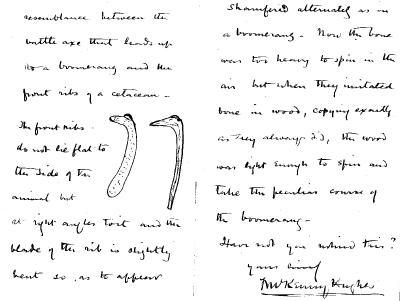 resemblance between the
battle axe that leads up
to a boomerang and the
front ribs of a cetacean –
The front ribs
do not lie flat to
the side of the
animal but
at right angles to it and the
blade of the rib is slightly
bent so as to appear
shamfered alternately as in
a boomerang – Now the bone
was too heavy to spin in the
air but when they imitated
bone in wood, copying exactly
as they always did, the wood
was light enough to spin and
take the peculiar course of
the boomerang –
Have not you noticed this?
yours
McKenny Hughes